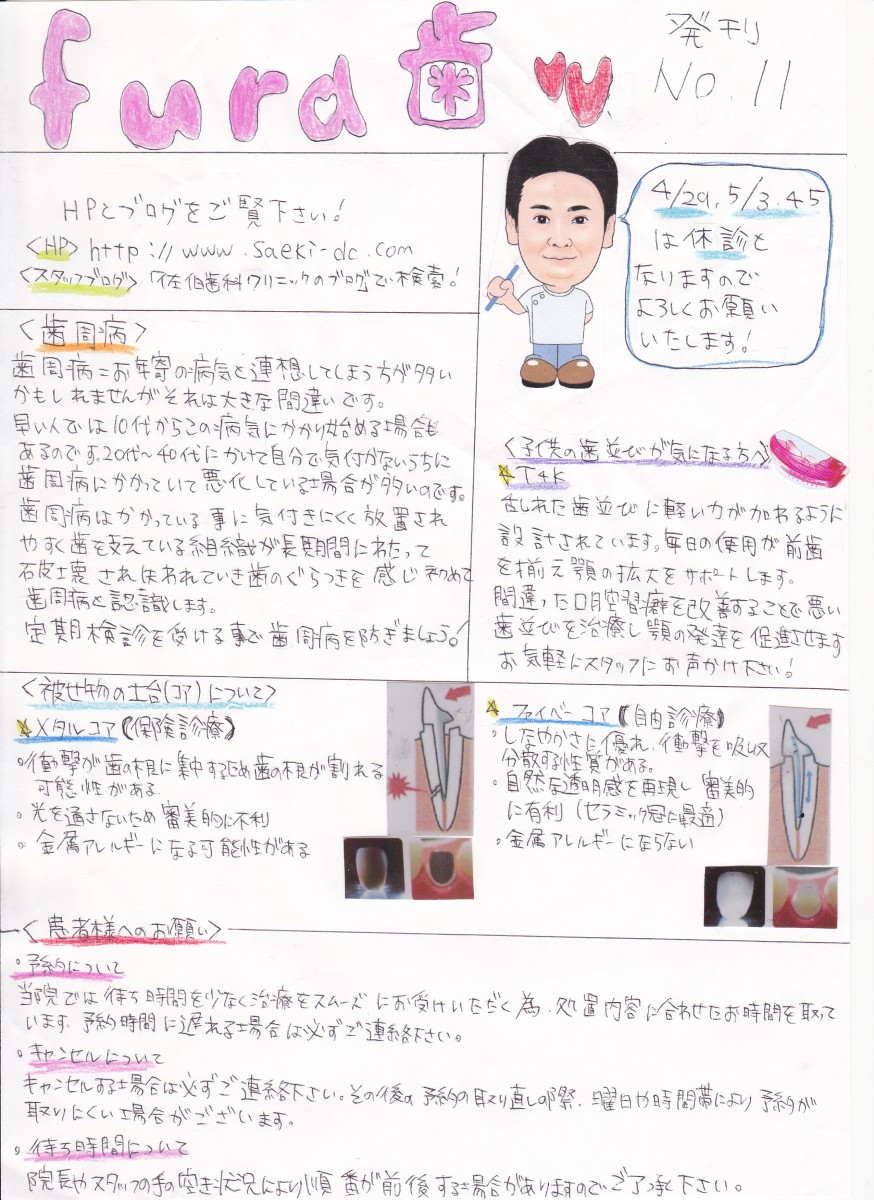 fura歯
発刊
No.11
HPとブログをご覧下さい!
<HP> http://www.saeki-dc.com
<スタッフブログ>「佐伯歯科クリニックのブログ」で検索!
4/29, 5/3.4.5
は休診と
なりますので
よろしくお願い
いたします!
<歯周病>
歯周病=お年寄の病気と連想してしまう方が多い
かもしれませんがそれは大きな間違いです。
早い人では10代からこの病気にかかり始める場合も
あるのです。20代~40代にかけて自分で気付かないうちに
歯周病にかかっていて悪化している場合が多いのです。
歯周病はかかっている事に気付きにくく放置され
やすく歯を支えている組織が長期間にわたって
破壊されほおわれていき歯のぐらつきを感じ初めて
歯周病と認識します。
定期検診を受ける事で歯周病を防ぎましょう!
<子供の歯並びが気になる方へ>
T4K
乱れた歯並びに軽い力が加わるように
設計されています。毎日の使用が前歯
を揃え顎の拡大をサポートします。
間違った口腔習癖を改善することで悪い
歯並びを治療し顎の発達を促進させます
お気軽にスタッフにお声かけ下さい!
<被せ物の土台(コア)について>
メタルコア《保険診療》
・衝撃が歯の根に集中するため歯の根が割れる
可能性がある
・光を通さないため審美的に不利
・金属アレルギーになる可能性がある
ファイバーコア《自由診療》
・しなやかさに優れ、衝撃を吸収
分散する性質がある。
・自然な透明感を再現し審美的
に有利(セラミック冠に最適)
・金属アレルギーにならない
<患者様へのお願い>
・予約について
当院では待ち時間を少なく治療をスムーズにお受けいただく為、処置内容に合わせたお時間を取って
います。予約時間に遅れる場合は必ずご連絡下さい。
・キャンセルについて
キャンセルする場合は必ずご連絡下さい。その後の予約の取り直しの際、曜日や時間帯により予約が
取りにくい場合がございます。
・待ち時間について
院長やスタッフの手の空き状況により順番が前後する場合がありますのでご了承下さい。